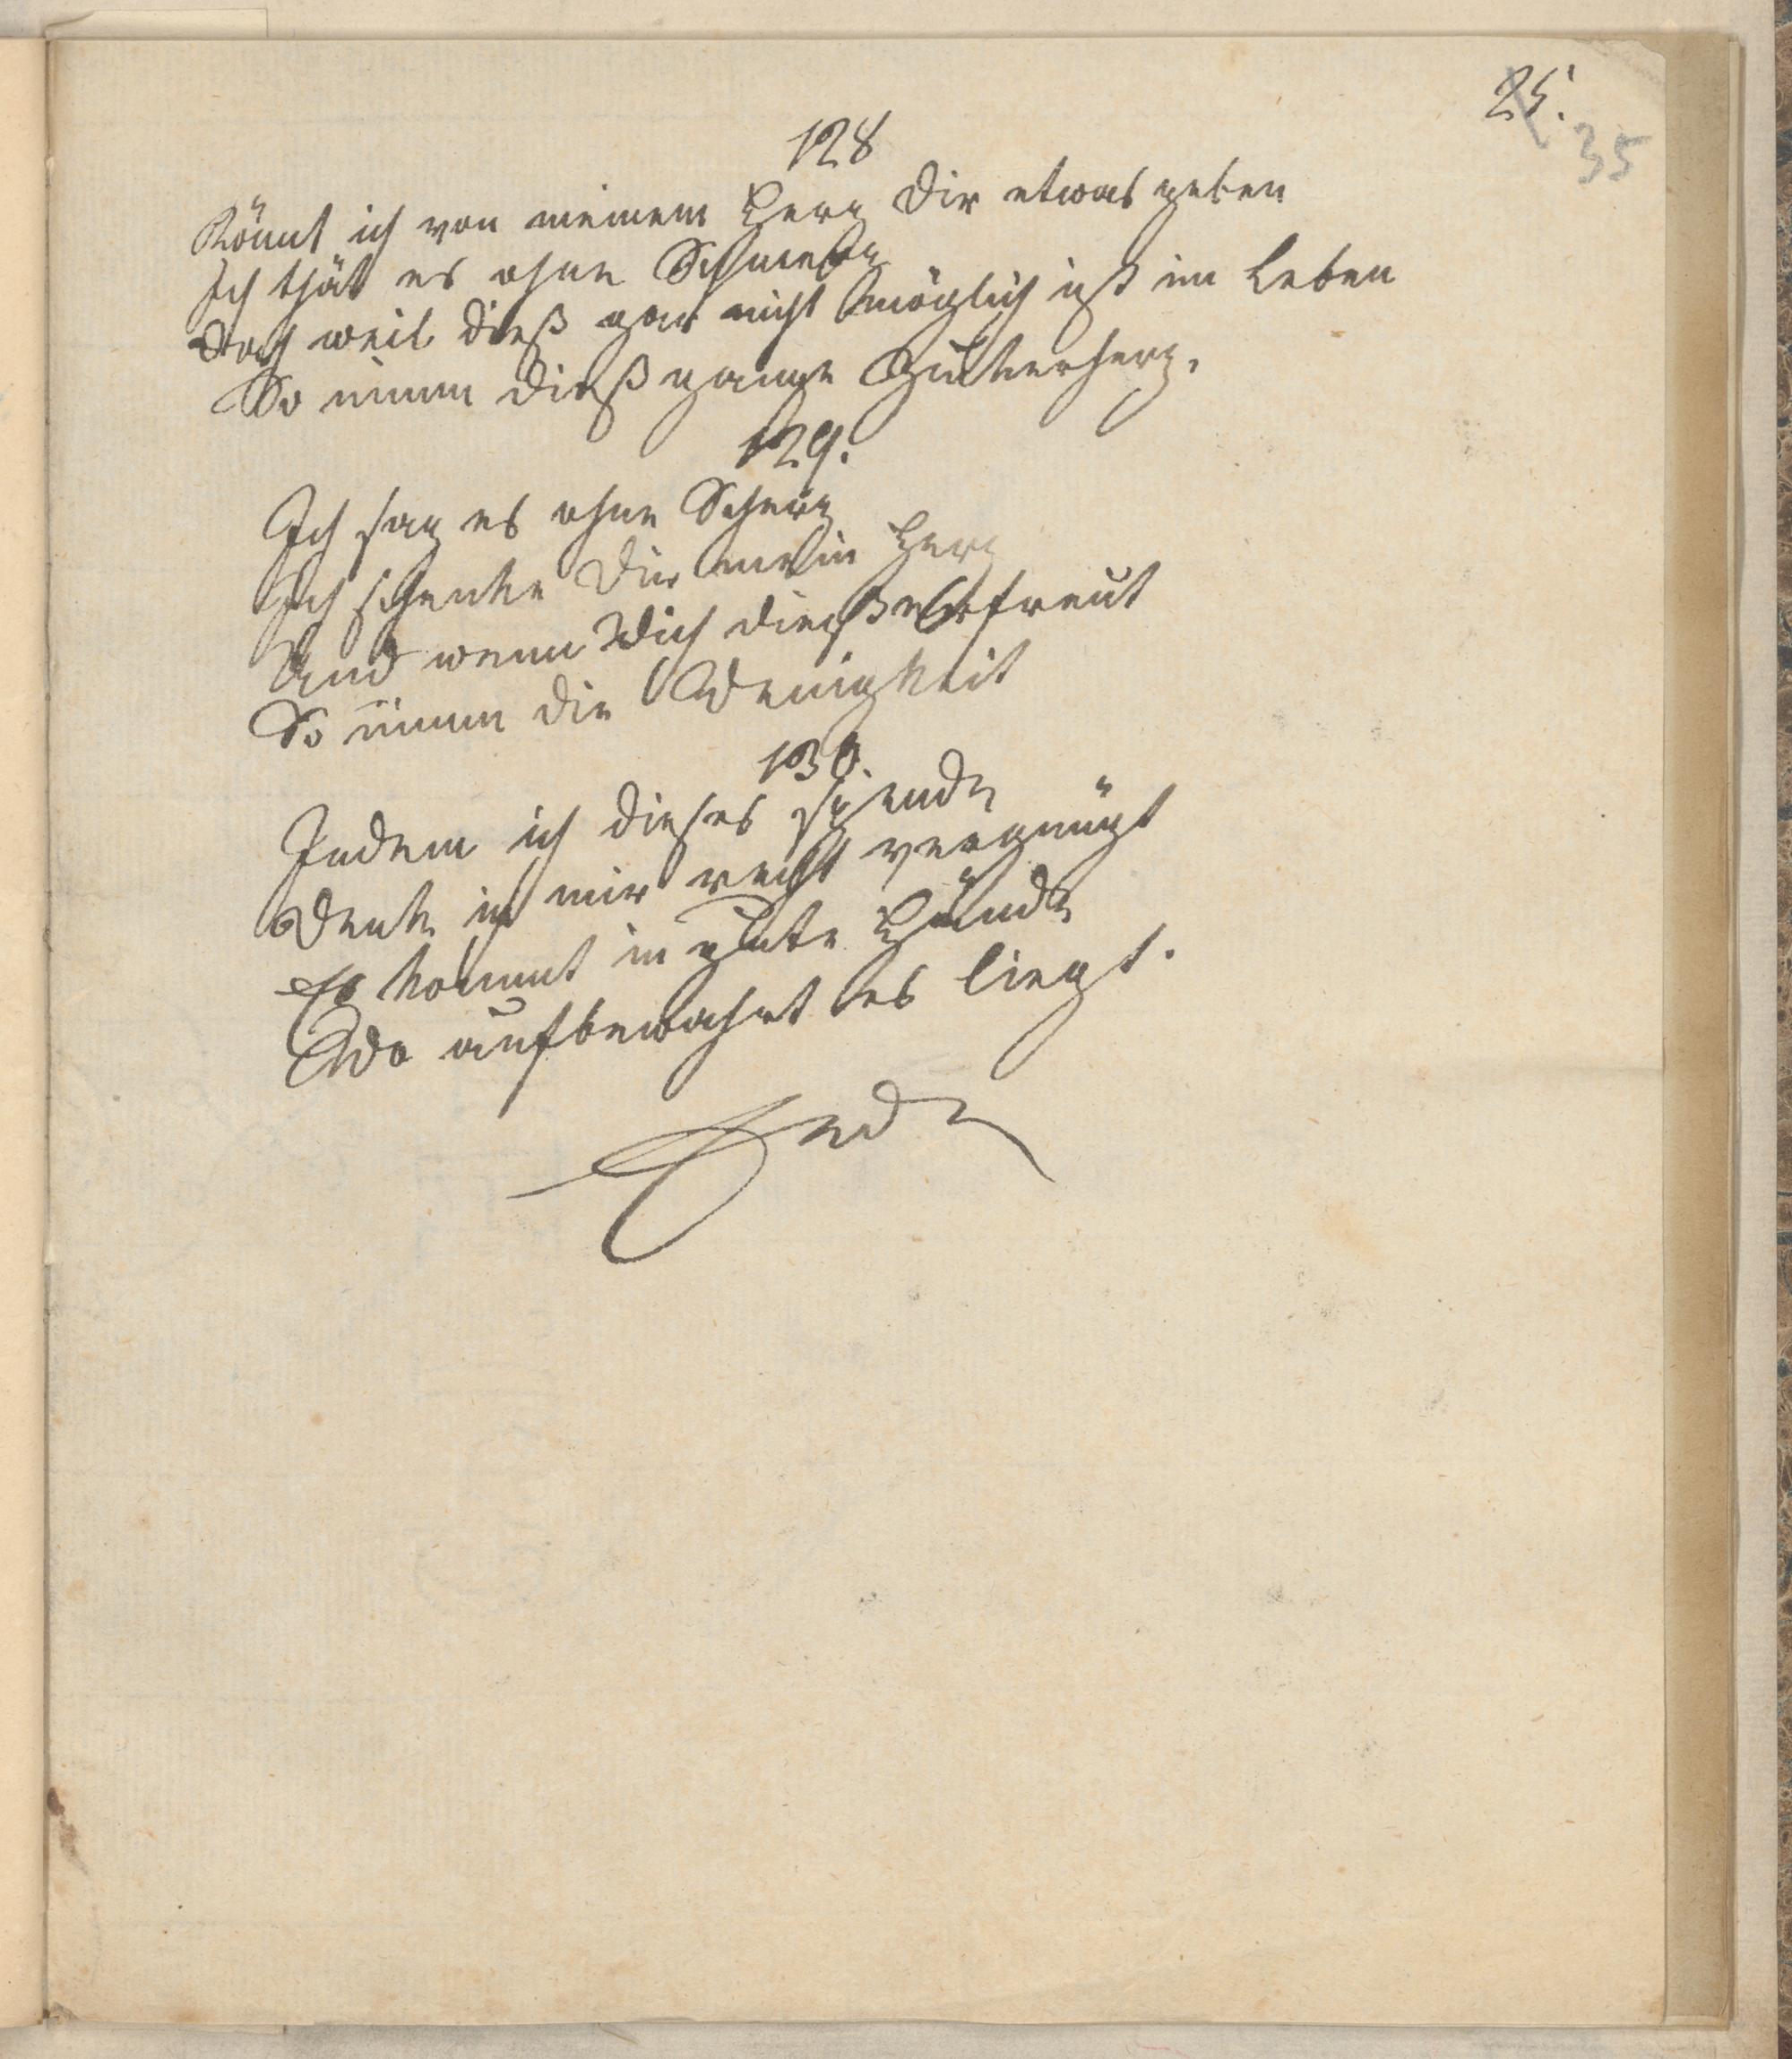 25.
35
128
Könnt ich von meinem Herz Dir etwas geben
Ich thät es ohne Schmerz
Doch weil dieß gar nicht möglich ist im Leben
So nimm dieß ganze Zuckerherz.
129.
Ich sag es ohne Scherz
Ich schenke Dir mein Herz
Und wenn Dich dieses erfreut
So nimm die Wenigkeit
130.
Indem ich dieses spende
Denk ich mir recht vergnügt
Es kommt in gute Hände
Wo aufbewahrt es liegt.
Ende